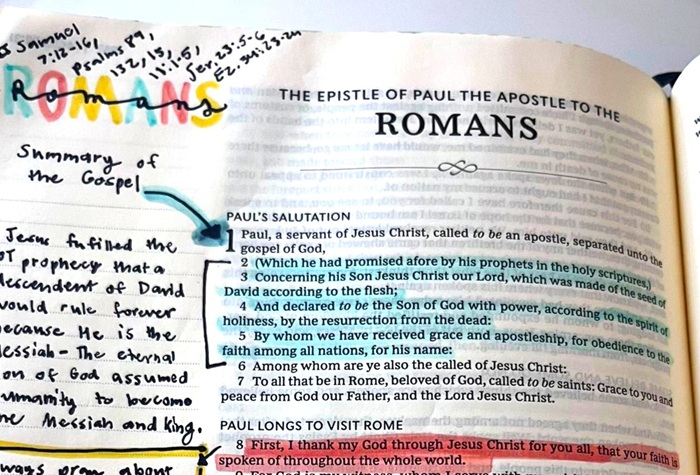 II Samuel
7:12-16,
Psalms 89,
132, 15,
11:1-5,
Jer. 23:5-6
Ez. 34:23-24
ROMANS
Romans
Summary of
the Gospel
Jesus fufilled the
OT prophecy that a
descendent of David
would rule forever
because He is the
Messiah - The eternal
son of God assumed
humanity to become
the Messiah and king.
ways pray about
THE EPISTLE OF PAUL THE APOSTLE TO THE
ROMANS
PAUL'S SALUTATION
1 Paul, a servant of Jesus Christ, called to be an apostle, separated unto the
gospel of God,
2 (Which he had promised afore by his prophets in the holy scriptures,)
3 Concerning his Son Jesus Christ our Lord, which was made of the seed of
David according to the flesh;
4 And declared to be the Son of God with power, according to the spirit of
holiness, by the resurrection from the dead:
5 By whom we have received grace and apostleship, for obedience to the
faith among all nations, for his name:
6 Among whom are ye also the called of Jesus Christ:
7 To all that be in Rome, beloved of God, called to be saints: Grace to you and
peace from God our Father, and the Lord Jesus Christ.
PAUL LONGS TO VISIT ROME
8 First, I thank my God through Jesus Christ for you all, that your faith is
spoken of throughout the whole world.